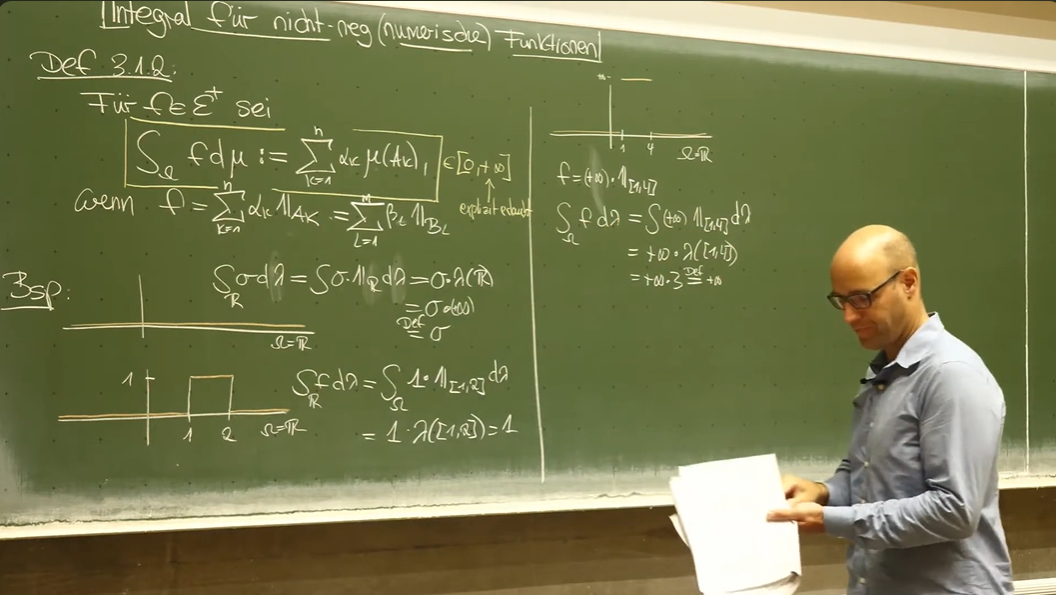 Integral für nicht-neg (numerische) Funktionen
Def 3.1.2:
Für f∈ℰ⁺ sei
∫_Ω f dμ := ∑_{k=1}^{n} α_k μ(A_k), ∈ [0,+∞]
explizit erlaubt
wenn f = ∑_{k=1}^{n} α_k 𝟙_{A_k} = ∑_{l=1}^{m} β_l 𝟙_{B_l}
Bsp:
∫_ℝ 0 dλ = ∫ 0·𝟙_ℝ dλ = 0·λ(ℝ)
= 0·(+∞)
Def
= 0
Ω=ℝ
1
∫_ℝ f dλ = ∫_Ω 1·𝟙_{[1,2]} dλ
= 1·λ([1,2]) = 1
1 2 Ω=ℝ
+∞
1 4 Ω=ℝ
f = (+∞)·𝟙_{[1,4]}
∫_Ω f dλ = ∫ (+∞) 𝟙_{[1,4]} dλ
= +∞·λ([1,4])
= +∞·3 Def = +∞